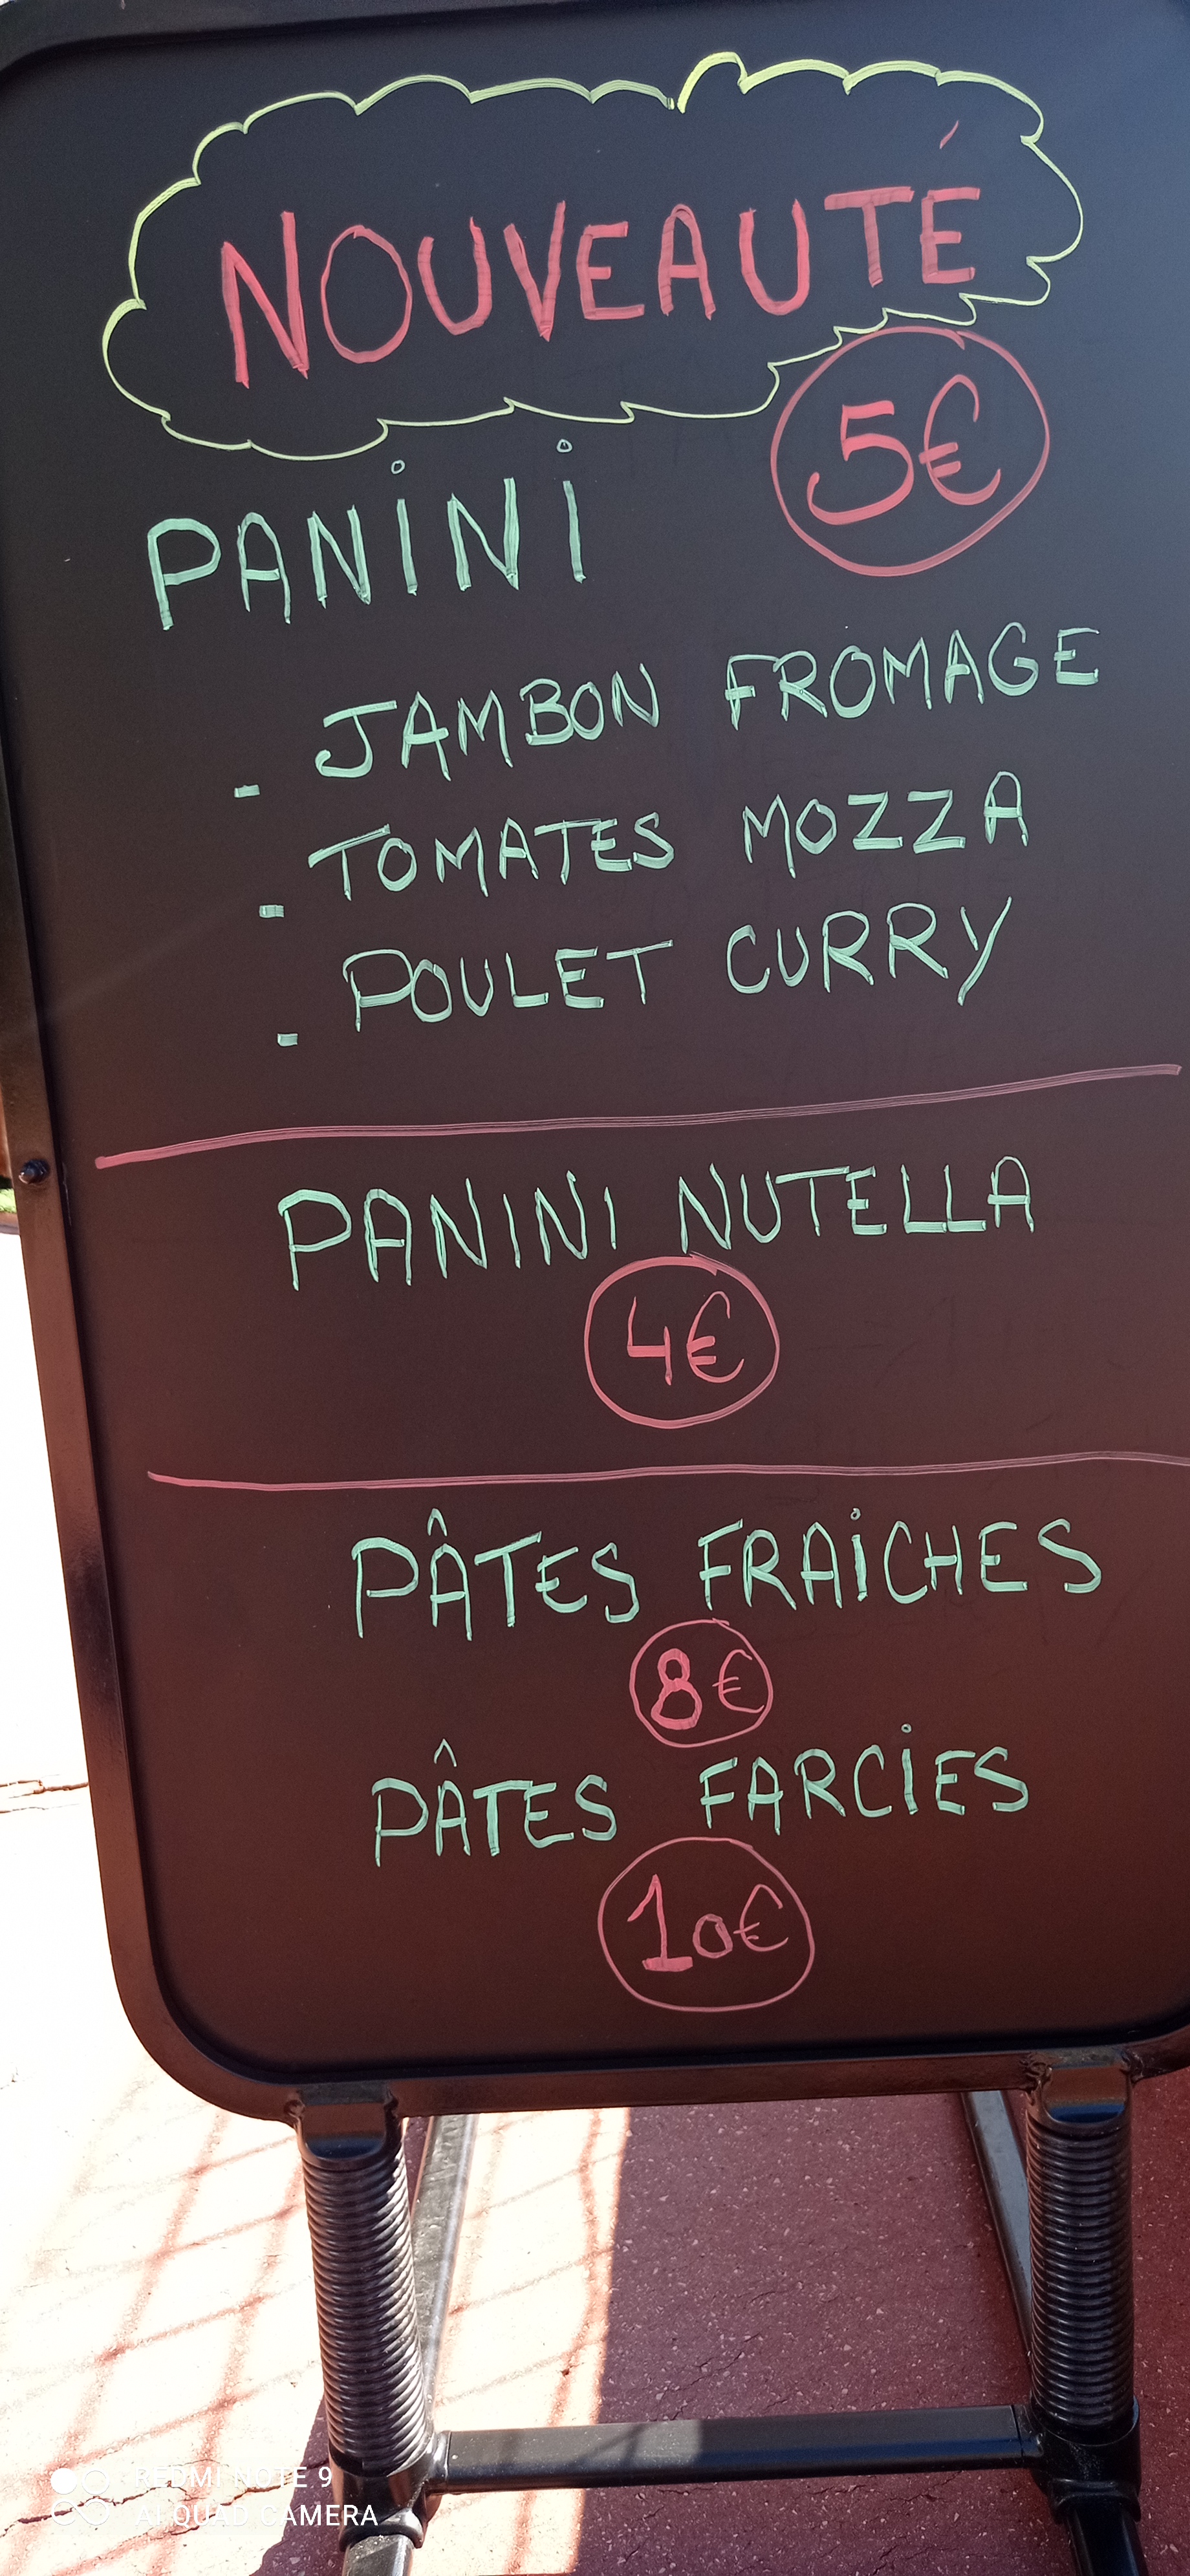 NOUVEAUTÉ
5€
PANINI
- JAMBON FROMAGE
- TOMATES MOZZA
- POULET CURRY
PANINI NUTELLA
4€
PÂTES FRAICHES
8€
PÂTES FARCIES
10€
REDMI NOTE 9
AI QUAD CAMERA